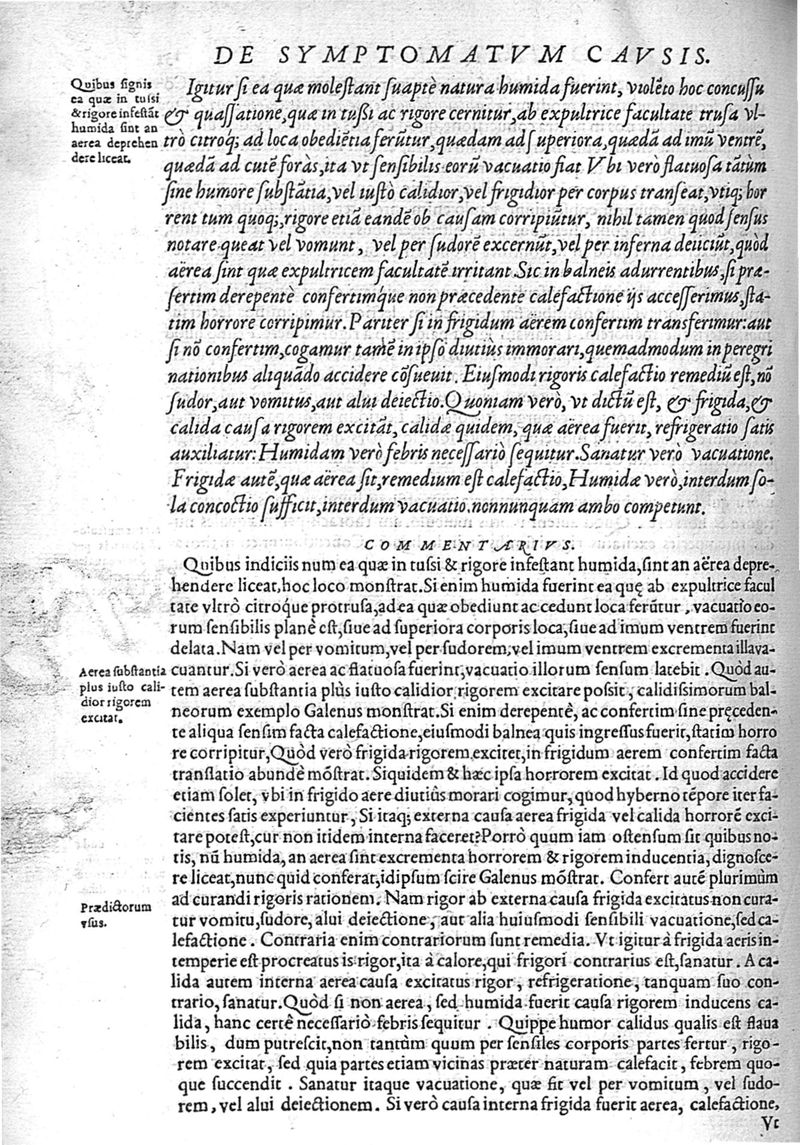 DE SYMPTOMATVM CAVSIS.
Quibus signis
ea quæ in tussi
& rigore infestãt
humida sint an
aerea deprehen
dere liceat.
Igitur si ea quæ molestant suaptè natura humida fuerint, violẽto hoc concussu
& quassatione, quæ in tussi ac rigore cernitur, ab expultrice facultate trusa vl-
trò citroq; ad loca obediẽtia ferũtur, quædam ad superiora, quædã ad imũ ventrẽ,
quædã ad cutẽ forâs, ita vt sensibilis eorũ vacuatio fiat Vbi verò flatuosa tãtùm
sine humore substãtia, vel iustò calidior, vel frigidior per corpus transeat, vtiq; hor
rent tum quoq;, rigore etiã eandẽ ob causam corripiũtur, nihil tamen quod sensus
notare queat vel vomunt, vel per sudorẽ excernũt, vel per inferna deiiciũt, quòd
aërea sint quæ expultricem facultatẽ irritant. Sic in balneis adurrentibus, si præ-
sertim derepentè confertimq́ue non præcedente calefactione ijs accesserimus, sta-
tim horrore corripimur. Pariter si in frigidum aërem confertim transferimur: aut
si nõ confertim, cogamur tamẽ in ipso diutiùs immorari, quemadmodum in peregri
nationibus aliquãdo accidere cõsueuit. Eiusmodi rigoris calefactio remediũ est, nõ
sudor, aut vomitus, aut alui deiectio. Quoniam verò, vt dictũ est, & frigida, &
calida causa rigorem excitãt, calidæ quidem, quæ aërea fuerit, refrigeratio satis
auxiliatur: Humidam verò febris necessariò sequitur. Sanatur verò vacuatione.
Frigidæ autẽ, quæ aërea sit, remedium est calefactio, Humidæ verò, interdum so-
la concoctio sufficit, interdum vacuatio. nonnunquam ambo competunt.
COMMENTARIVS.
Quibus indiciis num ea quæ in tussi & rigore infestant humida, sint an aërea depre-
hendere liceat, hoc loco monstrat. Si enim humida fuerint ea quę ab expultrice facul
tate vltrò citroq́ue protrusa, ad ea quæ obediunt ac cedunt loca ferũtur, vacuatio eo-
rum sensibilis planè est, siue ad superiora corporis loca, siue ad imum ventrem fuerint
delata. Nam vel per vomitum, vel per sudorem, vel imum ventrem excrementa illa va-
Aerea substantia
plus iusto cali-
dior rigorem
excitat.
cuantur. Si verò aerea ac flatuosa fuerint, vacuatio illorum sensum latebit. Quòd au-
tem aerea substantia plùs iusto calidior rigorem excitare possit, calidissimorum bal-
neorum exemplo Galenus monstrat. Si enim derepentè, ac confertim sine pręceden-
te aliqua sensim facta calefactione, eiusmodi balnea quis ingressus fuerit, statim horro
re corripitur, Quòd verò frigida rigorem excitet, in frigidum aerem confertim facta
translatio abundè mõstrat. Siquidem & hæc ipsa horrorem excitat. Id quod accidere
etiam solet, vbi in frigido aere diutiùs morari cogimur, quod hyberno tẽpore iter fa-
cientes satis experiuntur, Si itaq; externa causa aerea frigida vel calida horrorẽ exci-
tare potest, cur non itidem interna faceret? Porrò quum iam ostensum sit quibus no-
tis, nũ humida, an aerea sint excrementa horrorem & rigorem inducentia, dignosce-
re liceat, nunc quid conferat, id ipsum scire Galenus mõstrat. Confert autẽ plurimùm
Prædictorum
vsus.
ad curandi rigoris rationem. Nam rigor ab externa causa frigida excitatus non cura-
tur vomitu, sudore, alui deiectione, aut alia huiusmodi sensibili vacuatione, sed ca-
lefactione. Contraria enim contrariorum sunt remedia. Vt igitur à frigida aeris in-
temperie est procreatus is rigor, ita à calore, qui frigori contrarius est, sanatur. A ca-
lida autem interna aerea causa excitatus rigor, refrigeratione, tanquam suo con-
trario, sanatur. Quòd si non aerea, sed humida fuerit causa rigorem inducens ca-
lida, hanc certè necessariò febris sequitur. Quippe humor calidus qualis est flaua
bilis, dum putrescit, non tantùm quum per sensiles corporis partes fertur, rigo-
rem excitat, sed quia partes etiam vicinas præter naturam calefacit, febrem quo-
que succendit. Sanatur itaque vacuatione, quæ fit vel per vomitum, vel sudo-
rem, vel alui deiectionem. Si verò causa interna frigida fuerit aerea, calefactione,
Vt